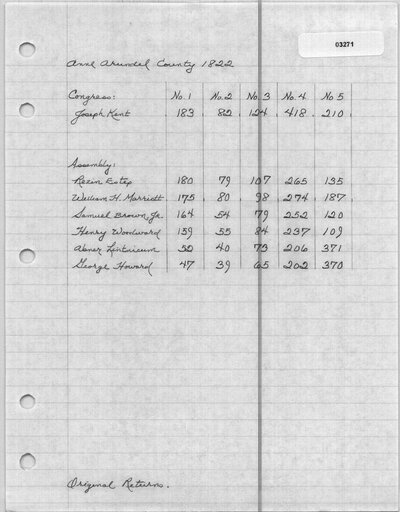 03271
Anne Arundel County 1822
Congress: No. 1 No. 2 No. 3 No. 4 No 5
Joseph Kent 183 82 124 418 210
Assembly:
Rezin Estep 180 79 107 265 135
William H. Marriott 175 80 98 274 187
Samuel Brown, Jr. 164 54 79 252 120
Henry Woodward 159 55 84 237 109
Abner Linthicum 52 40 73 206 371
George Howard 47 39 65 202 370
Original Returns.